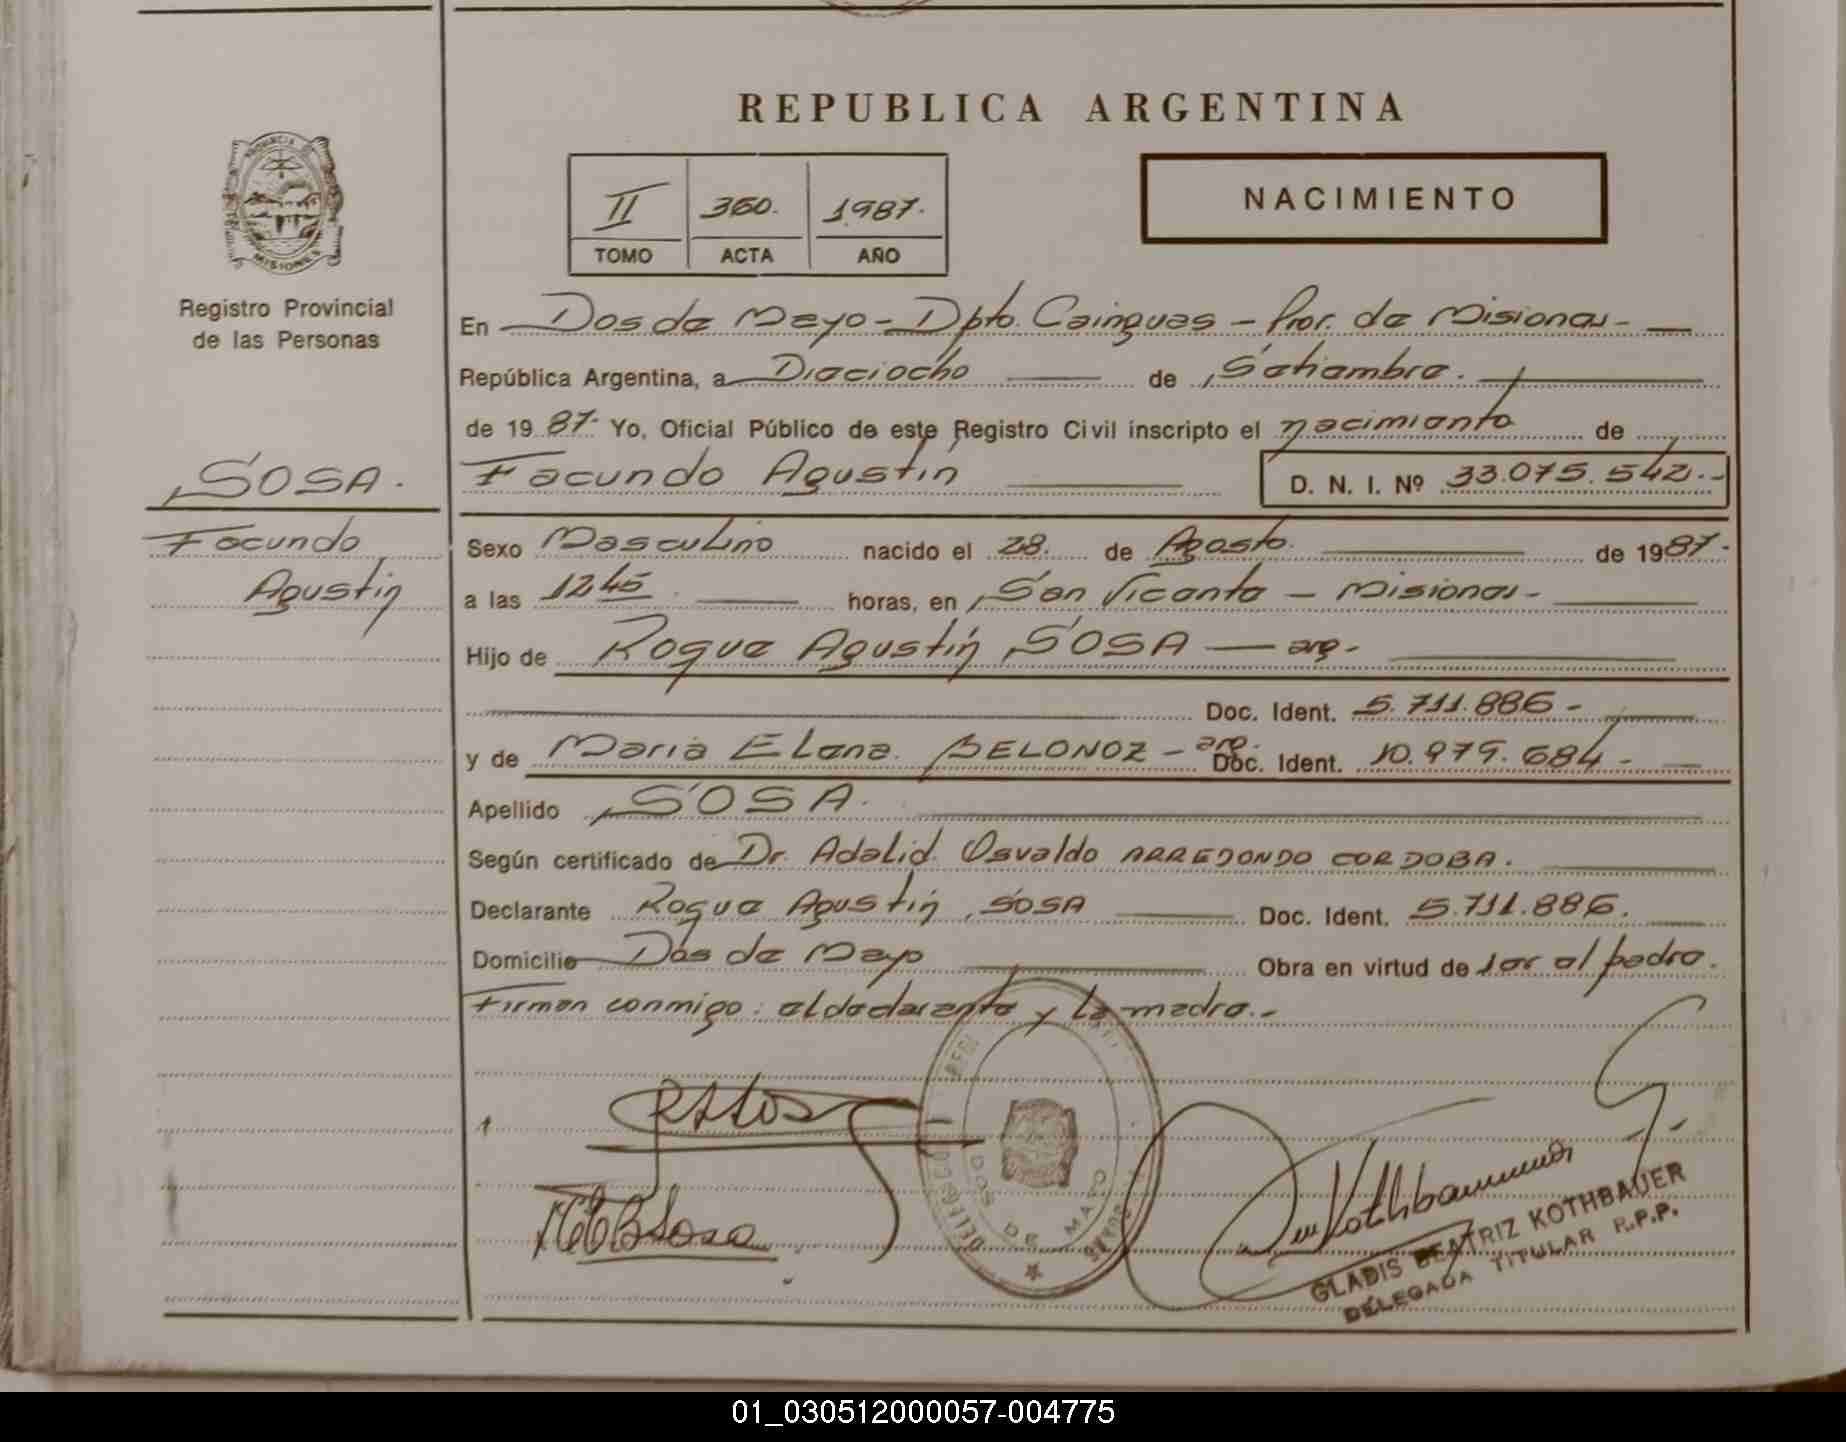 REPUBLICA ARGENTINA
PROVINCIA DE
MISIONES
Registro Provincial
de las Personas
II 360. 1987.
TOMO ACTA AÑO
NACIMIENTO
En Dos de Mayo - Dpto. Cainguas - Prov. de Misiones -
República Argentina, a Dieciocho de Setiembre.
de 1987- Yo, Oficial Público de este Registro Civil inscripto el nacimiento de
SOSA.
Facundo Agustin D. N. I. Nº 33.075.542.-
Facundo
Agustin
Sexo Masculino nacido el 28. de Agosto. de 1987-
a las 1245 horas, en San Vicente - Misiones-
Hijo de Roque Agustin SOSA — arg.
Doc. Ident. 5.711.886 -
y de Maria Elena. BELONOZ - arg. Doc. Ident. 10.979.684 -
Apellido SOSA.
Según certificado de Dr. Adalid Osvaldo ARREDONDO CORDOBA.
Declarante Roque Agustin SOSA Doc. Ident. 5.711.886.
Domicilio Dos de Mayo Obra en virtud de ser el padre.
Firman conmigo: el declarante y la madre.-
DOS DE MAYO
GLADIS BEATRIZ KOTHBAUER
DELEGADA TITULAR R.P.P.
01_030512000057-004775